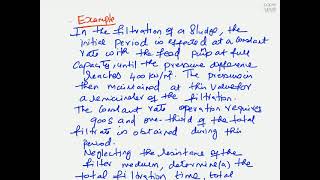 Example
In the filtration of a Sludge, the
initial period is effected at a Constant
rate with the feed pump at full
Capacity, until the pressure difference
reaches 400 kN/m². The pressure is
then maintained at this value for
a remainder of the filtration.
The Constant rate operation requires
900s and one-third of the total
filtrate is obtained during this
period.
Neglecting the resistance of the
filter medium, determine (a) the
total filtration time, total